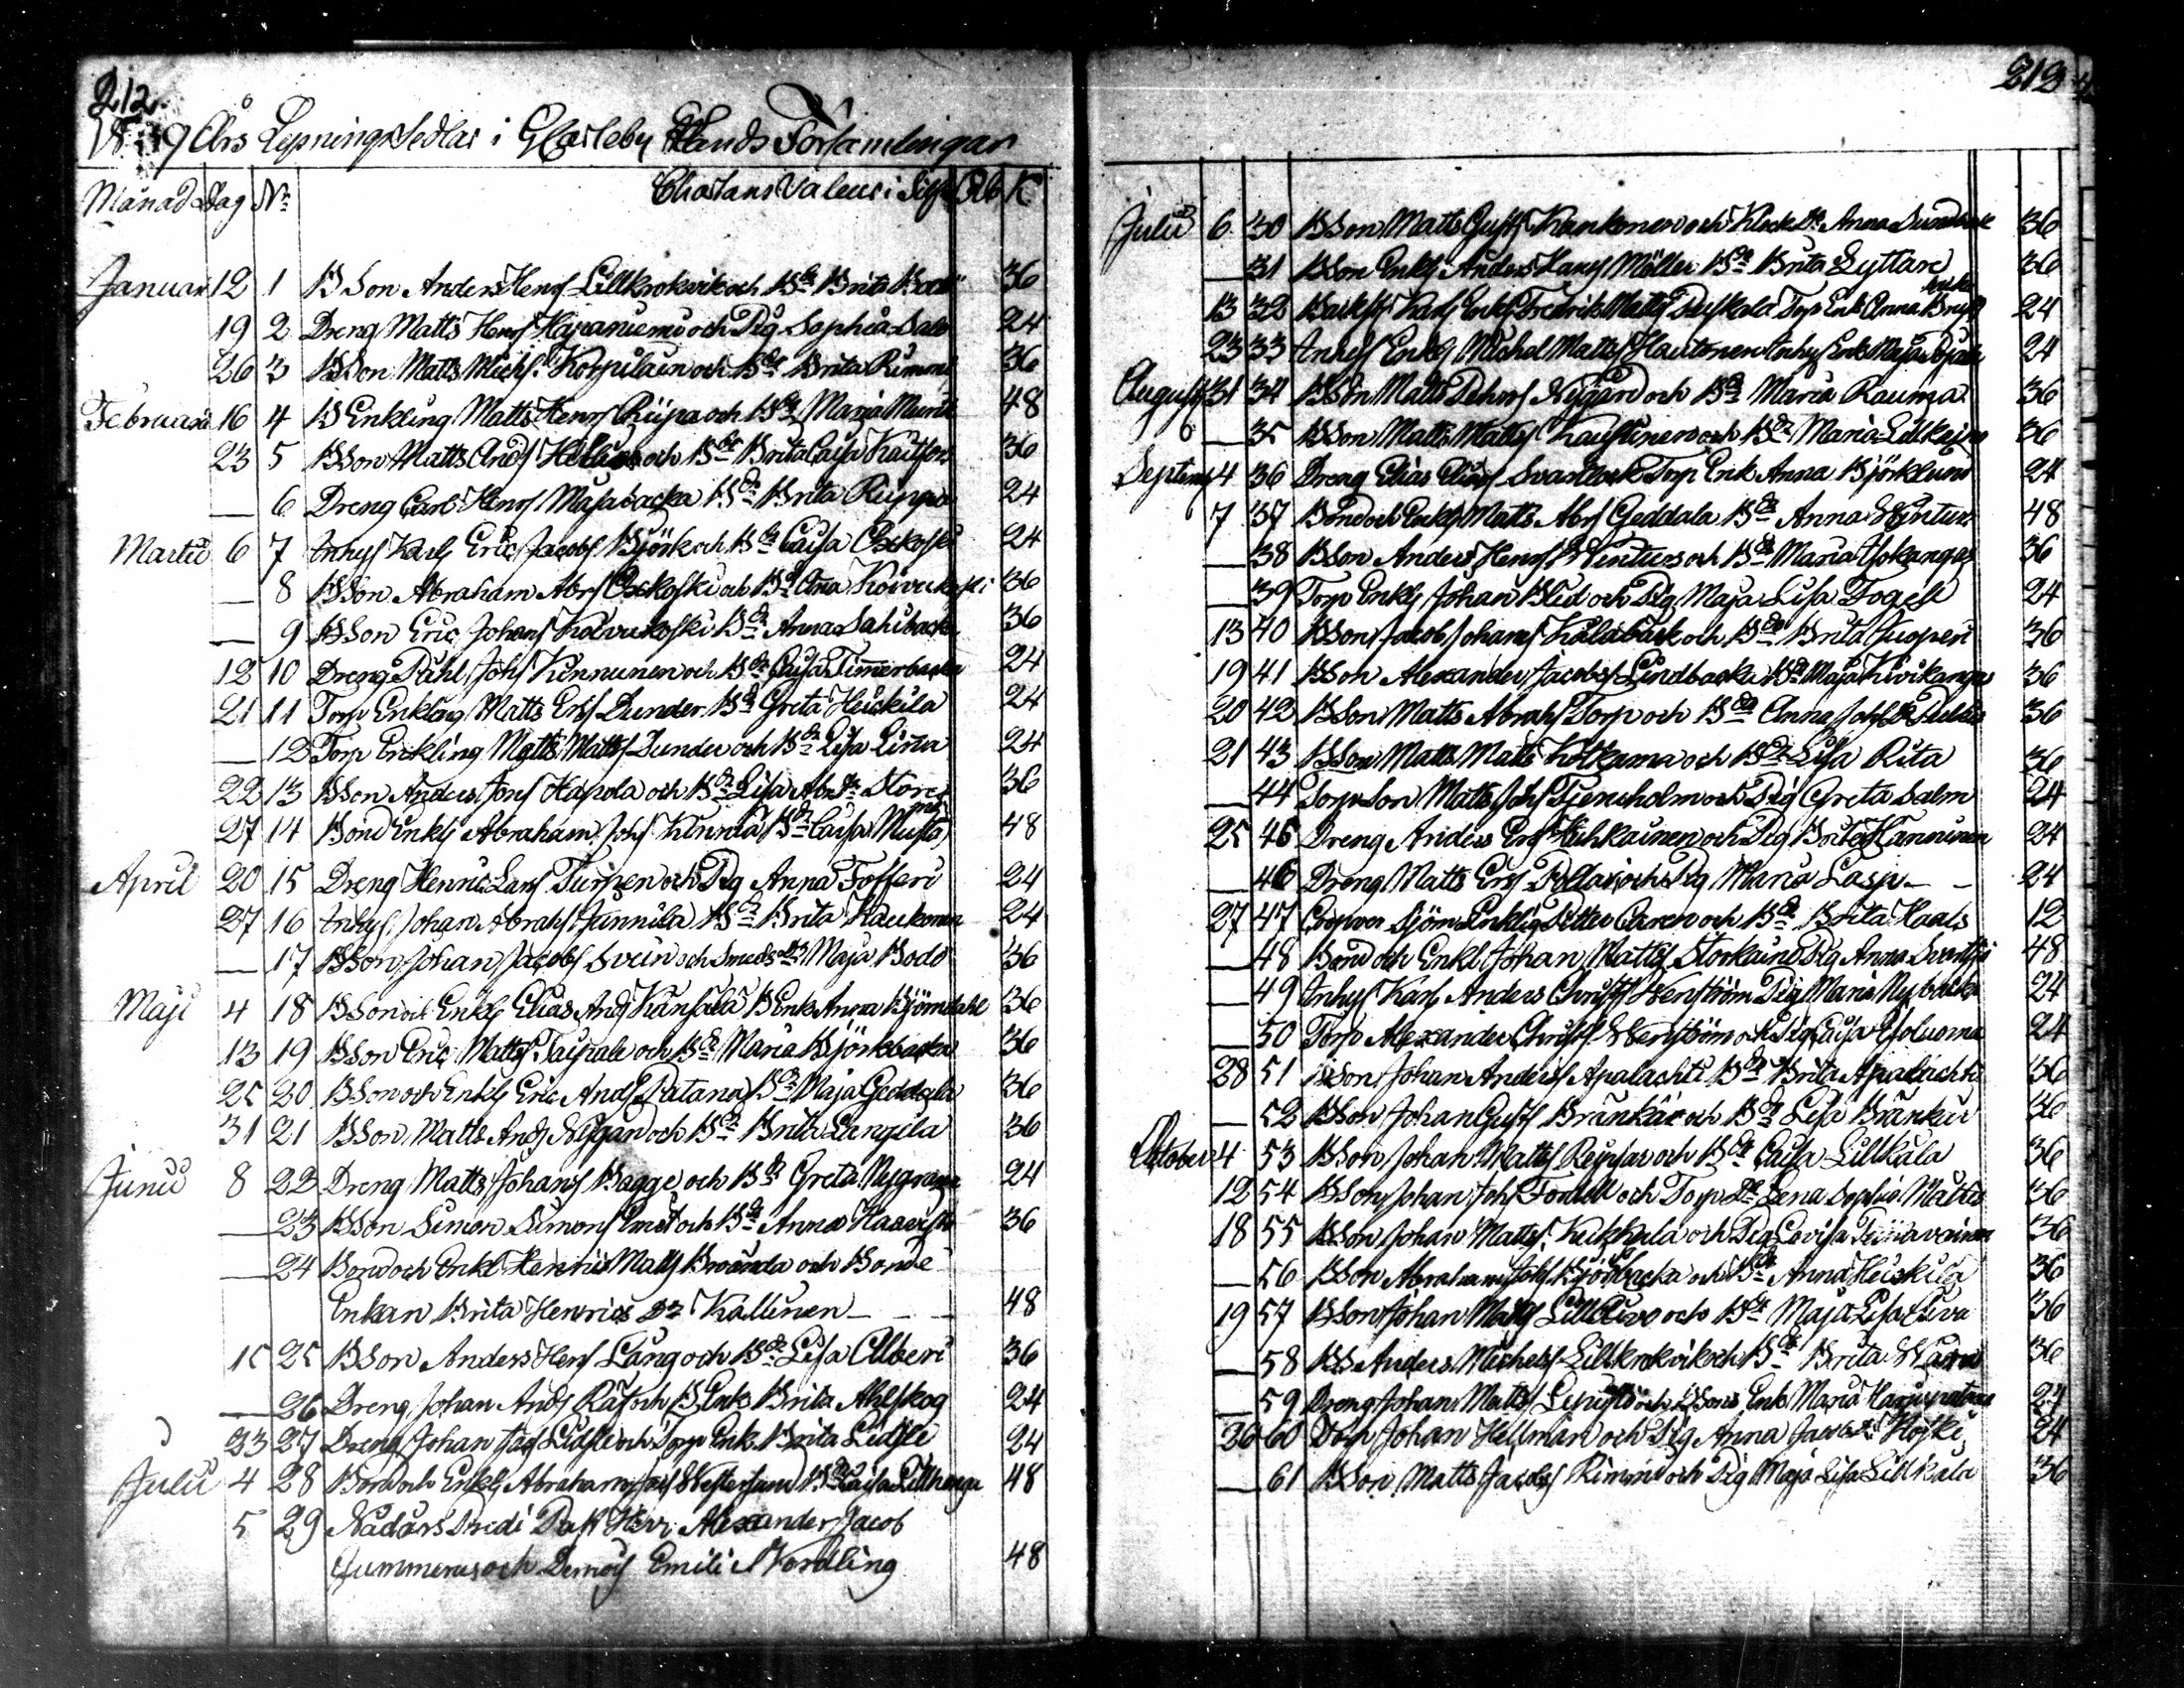 212.
1849 Års Lysnings Sedlar i GCarleby Lands Församlingar
Månad Dag No Chartans Valeur i Silf Rub K
Januari 12 1 BSon Anders Henrs Lillkrokvik och BDr Brita Bodö 36
19 2 Dreng Matts Henrs Haganiemi och Pig. Sophia Salo 24
26 3 BSon Matts Michs. Korpilain och BDr Brita Rimmi 36
Februari 16 4 B Enkling Matts Henrs Riipa och BDr Maria Murik 48
23 5 BSon Matts Ands och BDr Brita Caisa Kaitfors 36
— 6 Dreng Carl Henrs Majabacka BDr Brita Riippa 24
Martii 6 7 Inhys Karl Eric Jacobs Björk och BDr Caisa Åskoski 24
— 8 BSon Abraham Abrs Åskoski och BDr Anna Koivukoski 36
— 9 BSon Eric Johans Koivukoski BDr Anna Sahibacka 36
12 10 Dreng Påhl Johs Kinnunen och BDr Caisa Timmerbacka 24
21 11 Torp Enkling Matts Ers Dunder BDr Greta Heickila 24
— 12 Torp Enkling Matts Matts Dunder och BDr Lisa Linna 24
22 13 BSon Anders Jons Hapola och BDr Lisa Abr Dr Store 36
27 14 Bond Enklg Abraham Johs Kinnia BDr Caisa 48
April 20 15 Dreng Henric Lars Turpen och Pig Anna Tofferi 24
27 16 Inhys. Johan Abrahs Junnila BDr Brita Kaukonen 24
— 17 BSon Johan Jacobs Svein och Smeds Dr Maja Bodö 36
Maji 4 18 BSon och Enklg Elias Ands Kansala BEnk Anna Björndahl 36
13 19 BSon Eric Matts. Taipale och BDr Maria Björkbacka 36
25 20 BSon och Enklg Eric Ands Patana BDr Maja Geddala 36
31 21 BSon Matts Ands Nygård och BDr Brita Langila 36
Junii 8 22 Dreng Matts Johans Bagge och BDr Greta Nygrann 24
— 23 BSon Simon Simons Emet och BDr Anna Haavisto 36
— 24 Bond och Enkl Henric Matts Broända och Bonde
Enkan Brita Henrics Dr Källinen — — — 48
15 25 BSon Anders Henrs Lång och BDr Lisa Alberi 36
— 26 Dreng Johan Ands Räf och BEnk Brita Ahlskog 24
23 27 Dreng Johan Jacs Lidsle och Torp Enk. Brita Lidsle 24
Julii 4 28 Bond och Enklg Abraham Jacs Westersund BDr Caisa Lillhonga 48
5 29 Nådårs Predi Past Herr Alexander Jacob
Gummerus och Demois Emili Nordling 48
213
Julii 6 30 BSon Matts Gusts Kankonen och Klock Dr Anna Sundback 36
— 31 BSon Enklg Anders Hans Möller BDr Brita Lyttare 36
13 32 Karl Enklg Fredrik Matts Torp Enk Anna 24
23 33 Inhys Enklg Michel Matts Hautonen Inhys Enk Maja 24
August 31 34 BSon Matts Pehrs Nygård och BDr Maria Rauma 36
— 35 BSon Matts Matts Kaustinen och BDr Maria Lillkaino 36
Septemb 4 36 Dreng Elias Elias Svartbock Torp Enk Anna Björklund 24
7 37 Bond och Enklg Matts Abrs Geddala BDr Anna Wintturi 48
— 38 BSon Anders Henrs Wintturi och BDr Maria Jokangas 36
— 39 Torp Enklg Johan Blid och Pig Maja Lisa Fogell 24
13 40 BSon Jacob Johans Kalabäck och BDr Brita Kuoperi 36
19 41 BSon Alexander Jacobs Lindbacka BDr Maja Kivikangas 36
20 42 BSon Matts Abrahs Torp och BDr Anna Johs Dr 36
21 43 BSon Matts Matts Kotkama och BDr Lisa Rita 36
— 44 Torp Son Matts Johs Tjenholm och Pig Greta Salm 24
25 45 Dreng Anders Ers Hihkainen och Pig Brita Hannunen 24
— 46 Dreng Matts Ers Pollari och Pig Maria Lasp — — 24
27 47 Sjöm Enklig Petter Caren och BDr Brita Haals 12
— 48 Bond och Enkl. Johan Matts Storkaino Pig Anna 48
— 49 Inhys Karl Anders Christs Wenström Pig Maria Nybacka 24
— 50 Torp Alexander Christs Wenström och Pig Caisa Isoluoma 24
28 51 BSon Johan Anders Apalachti BDr Brita Apalachti 36
— 52 BSon Johan Gusts Brankär och BDr Lisa Brankär 36
October 4 53 BSon Johan Matts Reipas och BDr Caisa Lillkåla 36
12 54 BSon Johan Johs Fordell och Torp Dr Lena Sophia Matts 36
18 55 BSon Johan Matts. Keckhala och Pig Lovisa 36
— 56 BSon Abraham Johs Björkbacka och BDr Anna Heickila 36
19 57 BSon Johan Matts Lillkivi och BDr Maja Lisa 36
— 58 BS Anders Michels Lillkrokvik och BDr Brita 36
— 59 Dreng Johan Matts och Bond Enk Maria 24
26 60 Torp Johan Hellman och Pig Anna Jacobs Dr Höjki 24
— 61 BSon Matts Jacobs Rimmi och Pig Maja Lisa Lillkåla 36